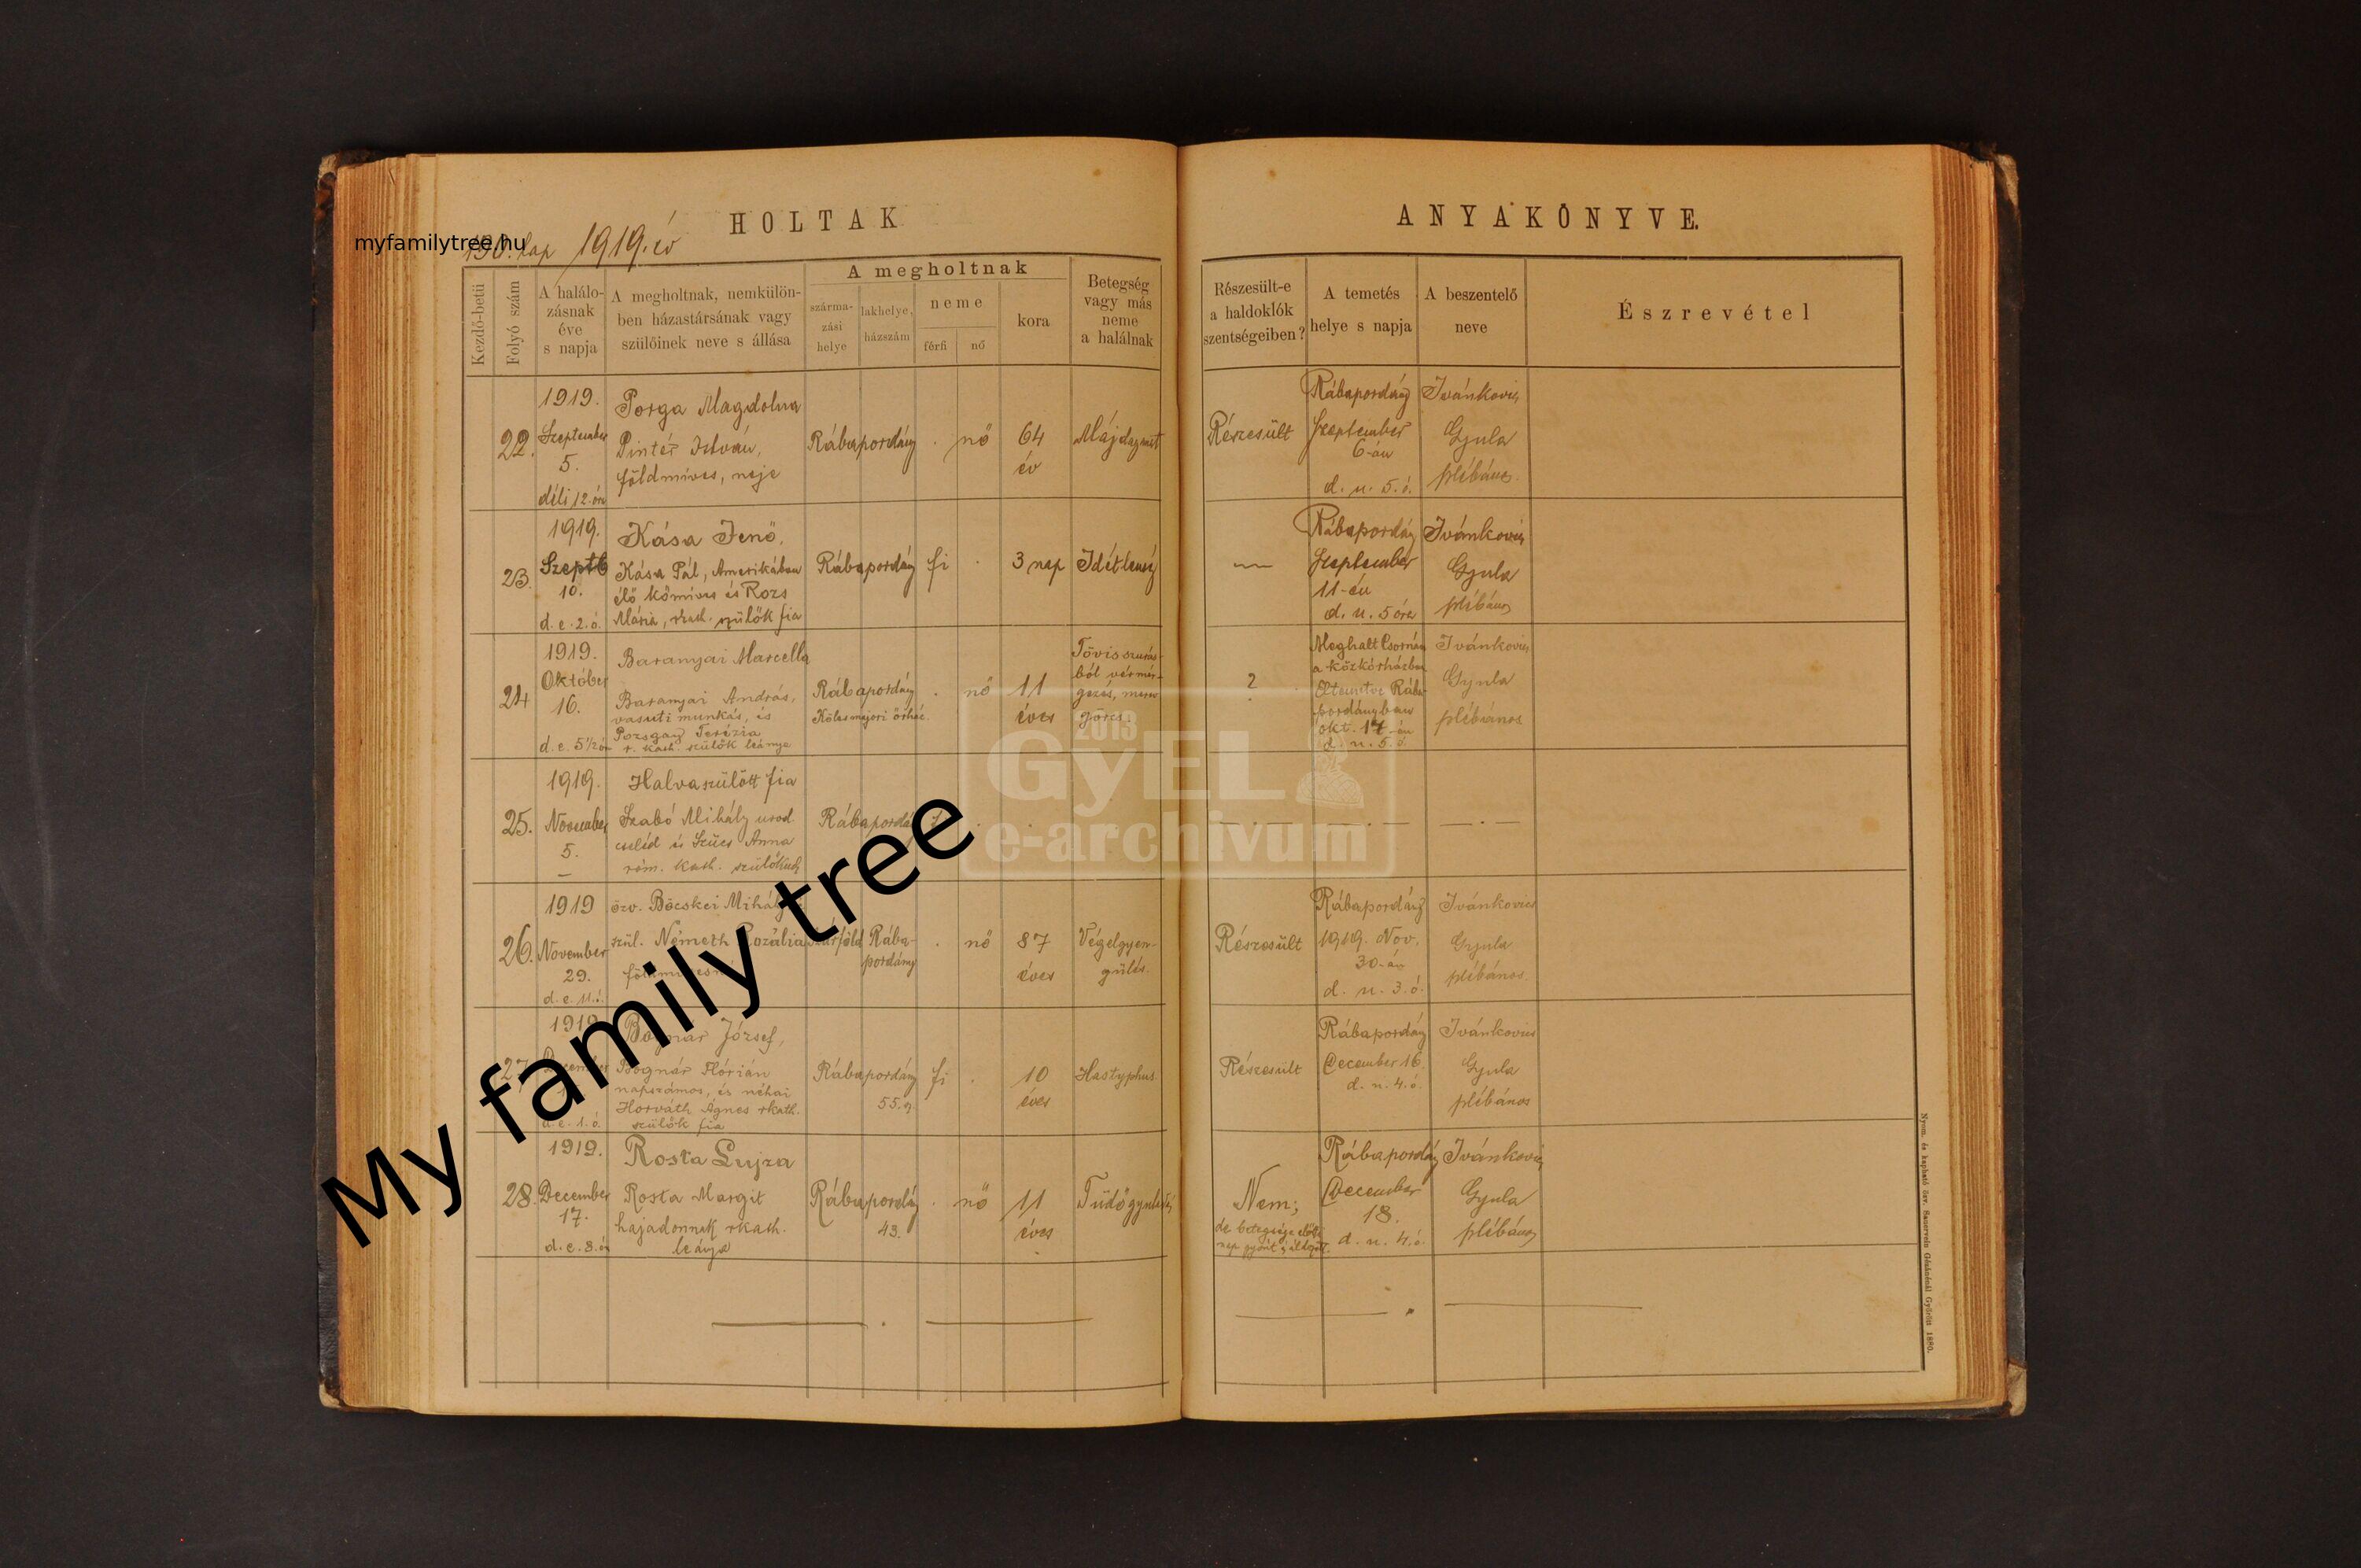 HOLTAK
ANYAKÖNYVE.
myfamilytree.hu
lap 1919. év
Kezdő-betü
Folyó szám
A halálo-
zásnak
éve
s napja
A megholtnak, nemkülön-
ben házastársának vagy
szülőinek neve s állása
A megholtnak
szárma-
zási
helye
lakhelye,
házszám
neme
férfi
nő
kora
Betegség
vagy más
neme
a halálnak
Részesült-e
a haldoklók
szentségeiben?
A temetés
helye s napja
A beszentelő
neve
Észrevétel
22.
1919.
September
5.
déli 12. óra
Porga Magdolna
Pintér István,
földmíves, neje
Rábapordány
nő
64
év
Májdaganat
Részesült
Rábapordány
September
6-án
d. u. 5. ó.
Ivánkovics
Gyula
plébános
23
1919.
Szeptb
10.
d. e. 2. ó.
Kása Jenő,
Kása Pál, Amerikában
élő kőmíves és Rozs
Mária, rkath. szülők fia
Rábapordány
fi
3 nap
Idétlenség
Rábapordány
Szeptember
11-én
d. u. 5 óra
Ivánkovics
Gyula
plébános
24
1919.
Október
16.
d. e. 5 1/2 ór
Baranyai Marcella
Baranyai András,
vasuti munkás, és
Pozsgay Terézia
r. kath. szülők leánya
Rábapordány
Kólesmajori őrház.
nő
11
éves
Tövisszurás-
ból vérmér-
gezés, merev
görcs.
?
Meghalt Csornán
a közkórházban
Eltemetve Rába-
pordányban
okt. 17-én
d. u. 5. ó.
Ivánkovics
Gyula
plébános
25.
1919.
November
5.
Halvaszülött fia
Szabó Mihály urad.
cseléd és Szücs Anna
róm. kath. szülőknek
Rábapordány
2013
GyEL
e-archivum
26.
1919
November
29.
d. e. 11. ó.
özv. Böcskei Mihályné
szül. Németh Rozália
Szárföld
Rába-
pordány
nő
87
éves
Végelgyen-
gülés.
Részesült
Rábapordány
1919. Nov.
30-án
d. u. 3. ó.
Ivánkovics
Gyula
plébános.
27
1919
d. e. 1. ó.
Bognár József,
Bognár Flórián
napszámos, és néhai
Horváth Ágnes rkath.
szülők fia
Rábapordány
55.
fi
10
éves
Hastyphus.
Részesült
Rábapordány
December 16
d. u. 4. ó.
Ivánkovics
Gyula
plébános
28.
1919.
December
17.
d. e. 8. ó
Rosta Lujza
Rosta Margit
hajadonnak rkath.
leánya
Rábapordány
43.
nő
11
éves
Tüdőgyuladás
Nem;
de betegsége előtti
nap gyónt s áldozott.
Rábapordány
December
18.
d. u. 4. ó.
Ivánkovics
Gyula
plébános
My family tree
Nyom. és kapható özv. Sauervein Gézánénál Győrött 1880.